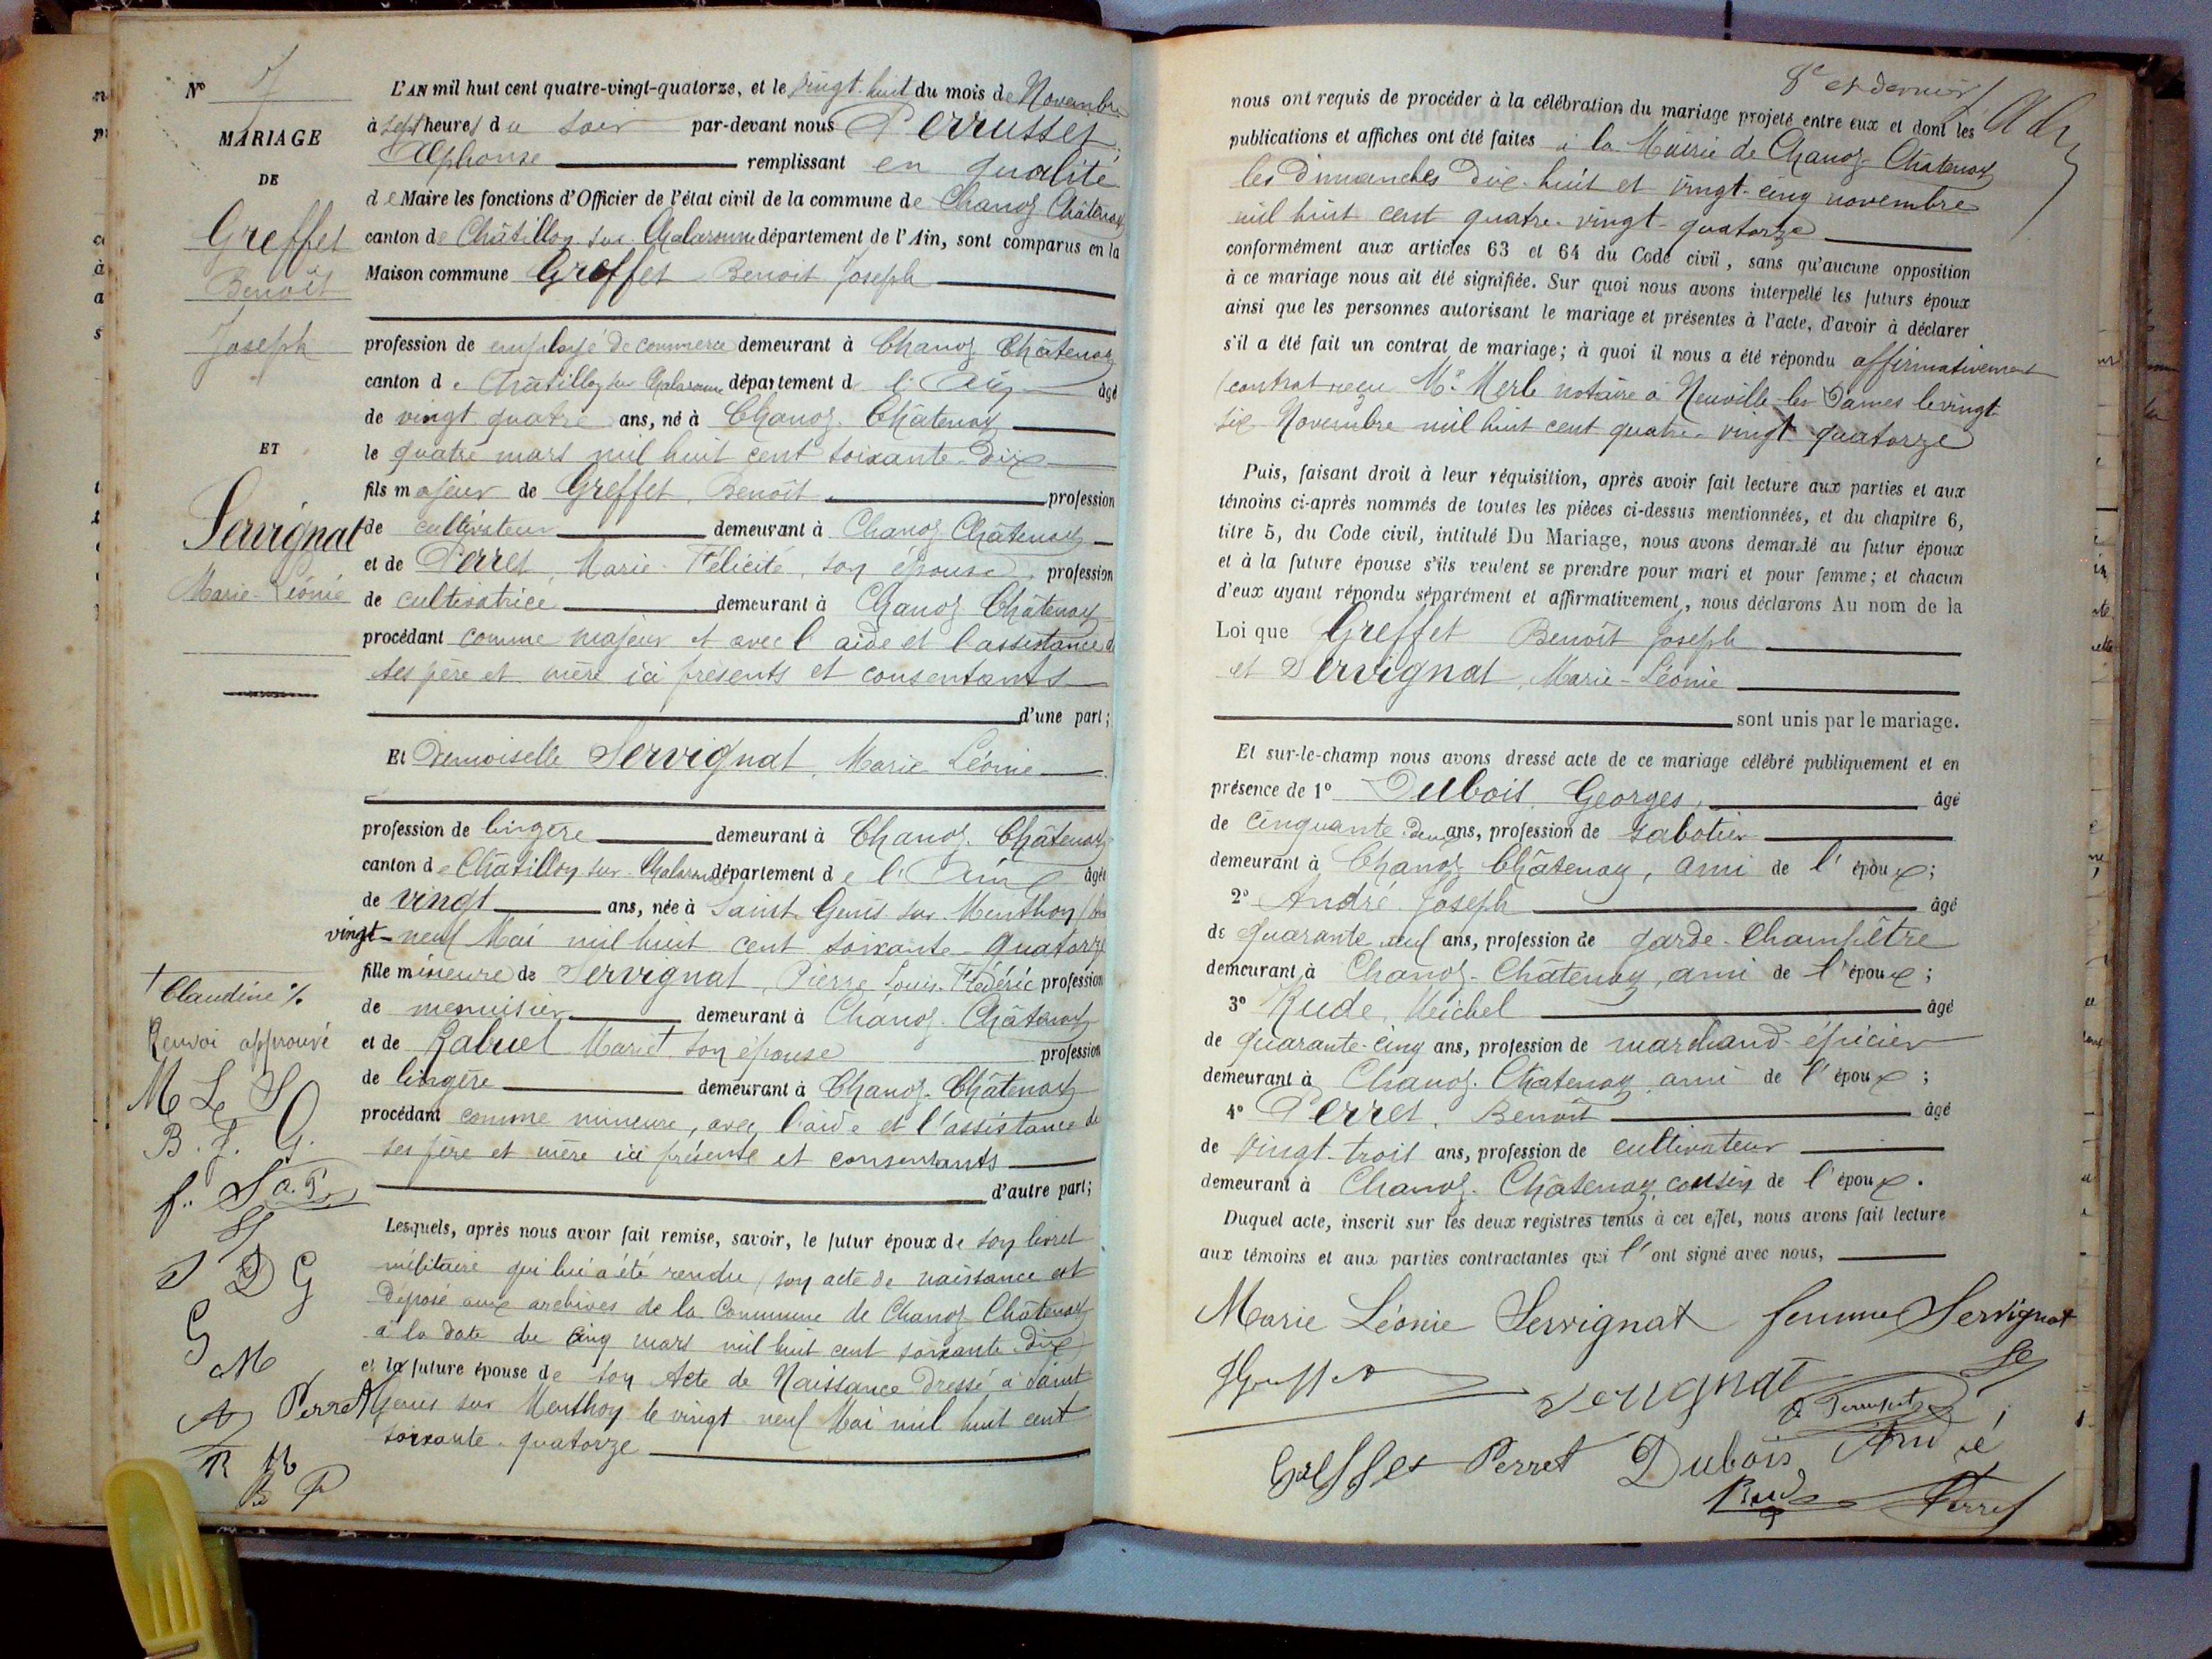 N° 7
MARIAGE
DE
Greffet
Benoît
Joseph
ET
Servignat
Marie-Léonie
† Claudine %
Renvoi approuvé
M L S
B. J. G.
f. S
D G
G
M
Perret
R
L'AN mil huit cent quatre-vingt-quatorze, et le vingt-huit du mois de Novembre
à sept heures du soir par-devant nous Perrusset
Alphonse remplissant en qualité
de Maire les fonctions d'Officier de l'état civil de la commune de Chanoz Châtenay
canton de Châtillon sur Chalaronne département de l'Ain, sont comparus en la
Maison commune Greffet Benoit Joseph
profession de employé de commerce demeurant à Chanoz Châtenay
canton de Châtillon sur Chalaronne département de l'Ain âgé
de vingt quatre ans, né à Chanoz-Châtenay
le quatre mars mil huit cent soixante-dix
fils majeur de Greffet, Benoît profession
de cultivateur demeurant à Chanoz Châtenay
et de Perret, Marie-Félicité, son épouse, profession
de cultivatrice demeurant à Chanoz Châtenay
procédant comme majeur et avec l'aide et l'assistance de
ses père et mère ici présents et consentants
d'une part;
Et Demoiselle Servignat, Marie Léonie
profession de lingère demeurant à Chanoz-Châtenay
canton de Châtillon sur Chalaronne département de l'Ain âgée
de vingt ans, née à Saint Genis sur Menthon, le
vingt-neuf Mai mil huit cent soixante-quatorze
fille mineure de Servignat, Pierre Louis-Frédéric profession
de menuisier demeurant à Chanoz-Châtenay
et de Gabuel Marie † son épouse profession
de lingère demeurant à Chanoz-Châtenay
procédant comme mineure, avec l'aide et l'assistance de
ses père et mère ici présents et consentants
d'autre part;
Lesquels, après nous avoir fait remise, savoir, le futur époux de son livret
militaire qui lui a été rendu (son acte de naissance est
déposé aux archives de la Commune de Chanoz Châtenay
à la date du cinq mars mil huit cent soixante-dix)
et la future épouse de son Acte de Naissance dressé à Saint
Genis sur Menthon le vingt-neuf Mai mil huit cent
soixante-quatorze
8e et dernier
nous ont requis de procéder à la célébration du mariage projeté entre eux et dont les
publications et affiches ont été faites à la Mairie de Chanoz-Chatenay
les Dimanches Dix-huit et vingt-cinq novembre
mil huit cent quatre-vingt-quatorze
conformément aux articles 63 et 64 du Code civil, sans qu'aucune opposition
à ce mariage nous ait été signifiée. Sur quoi nous avons interpellé les futurs époux
ainsi que les personnes autorisant le mariage et présentes à l'acte, d'avoir à déclarer
s'il a été fait un contrat de mariage; à quoi il nous a été répondu affirmativement
(contrat reçu Me Merle notaire à Neuville les Dames le vingt-
six Novembre mil huit cent quatre-vingt quatorze
Puis, faisant droit à leur réquisition, après avoir fait lecture aux parties et aux
témoins ci-après nommés de toutes les pièces ci-dessus mentionnées, et du chapitre 6,
titre 5, du Code civil, intitulé Du Mariage, nous avons demandé au futur époux
et à la future épouse s'ils veulent se prendre pour mari et pour femme; et chacun
d'eux ayant répondu séparément et affirmativement, nous déclarons Au nom de la
Loi que Greffet Benoît Joseph
et Servignat, Marie-Léonie
sont unis par le mariage.
Et sur-le-champ nous avons dressé acte de ce mariage célébré publiquement et en
présence de 1° Dubois, Georges, âgé
de cinquante-deux ans, profession de sabotier
demeurant à Chanoz Châtenay, ami de l'époux;
2° André Joseph âgé
de quarante neuf ans, profession de garde-Champêtre
demeurant à Chanoz-Châtenay, ami de l'époux;
3° Rude, Meichel âgé
de quarante-cinq ans, profession de marchand-épicier
demeurant à Chanoz-Chatenay ami de l'époux;
4° Perret, Benoît âgé
de vingt-trois ans, profession de cultivateur
demeurant à Chanoz-Châtenay, cousin de l'époux.
Duquel acte, inscrit sur les deux registres tenus à cet effet, nous avons fait lecture
aux témoins et aux parties contractantes qui l'ont signé avec nous,
Marie Léonie Servignat femme Servignat
Greffet Servignat
Greffet Perret Dubois André
Rude Perret